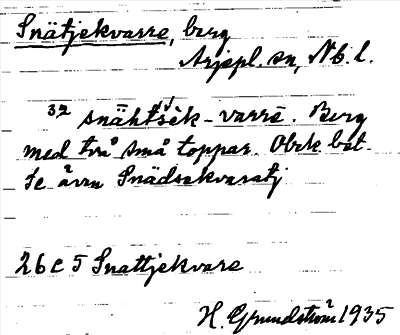 Snätjekvarre, berg
Arjepl. sn, Nb. l.
32 snähtsèk-varrē. Berg
med två små toppar. Obek bet.
Se även Snädsekvaratj
26 C 5 Snattjekvare
H. Grundström 1935